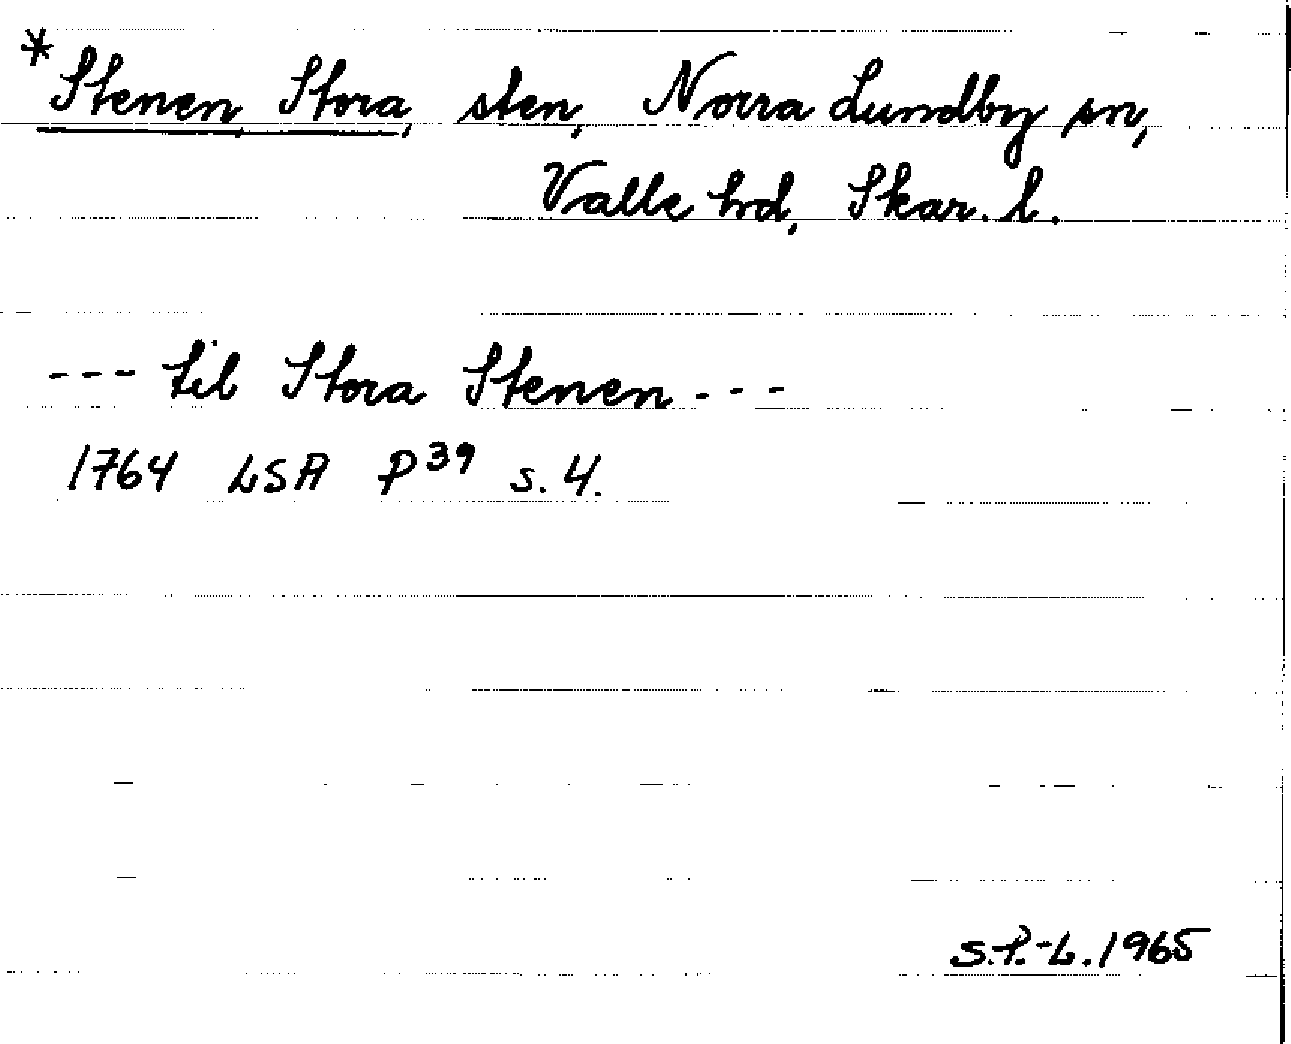 *Stenen, Stora, sten, Norra Lundby sn,
Valle hd, Skar. l.
--- til Stora Stenen ---
1764 LSA P39 s. 4.
S.P.-L. 1965